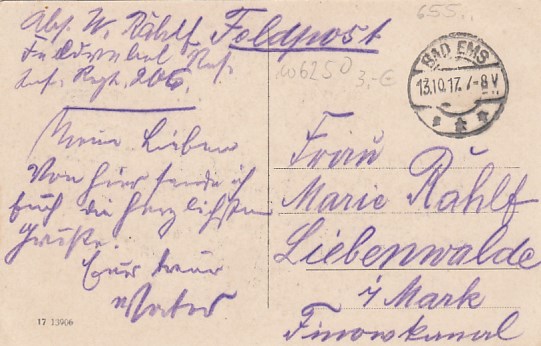 Abs. W. Rählf
Feldwebel Res.
Inf. Regt. 206.
Feldpost
655.
W6250
3,-€
BAD EMS
13.10.17. 7-8 V
Meine Lieben
Von hier sende ich
Euch die herzlichsten
Grüße.
Euer treuer
Vater
Frau
Marie Rählf
Liebenwalde
i/ Mark
Finowkanal
17 13906